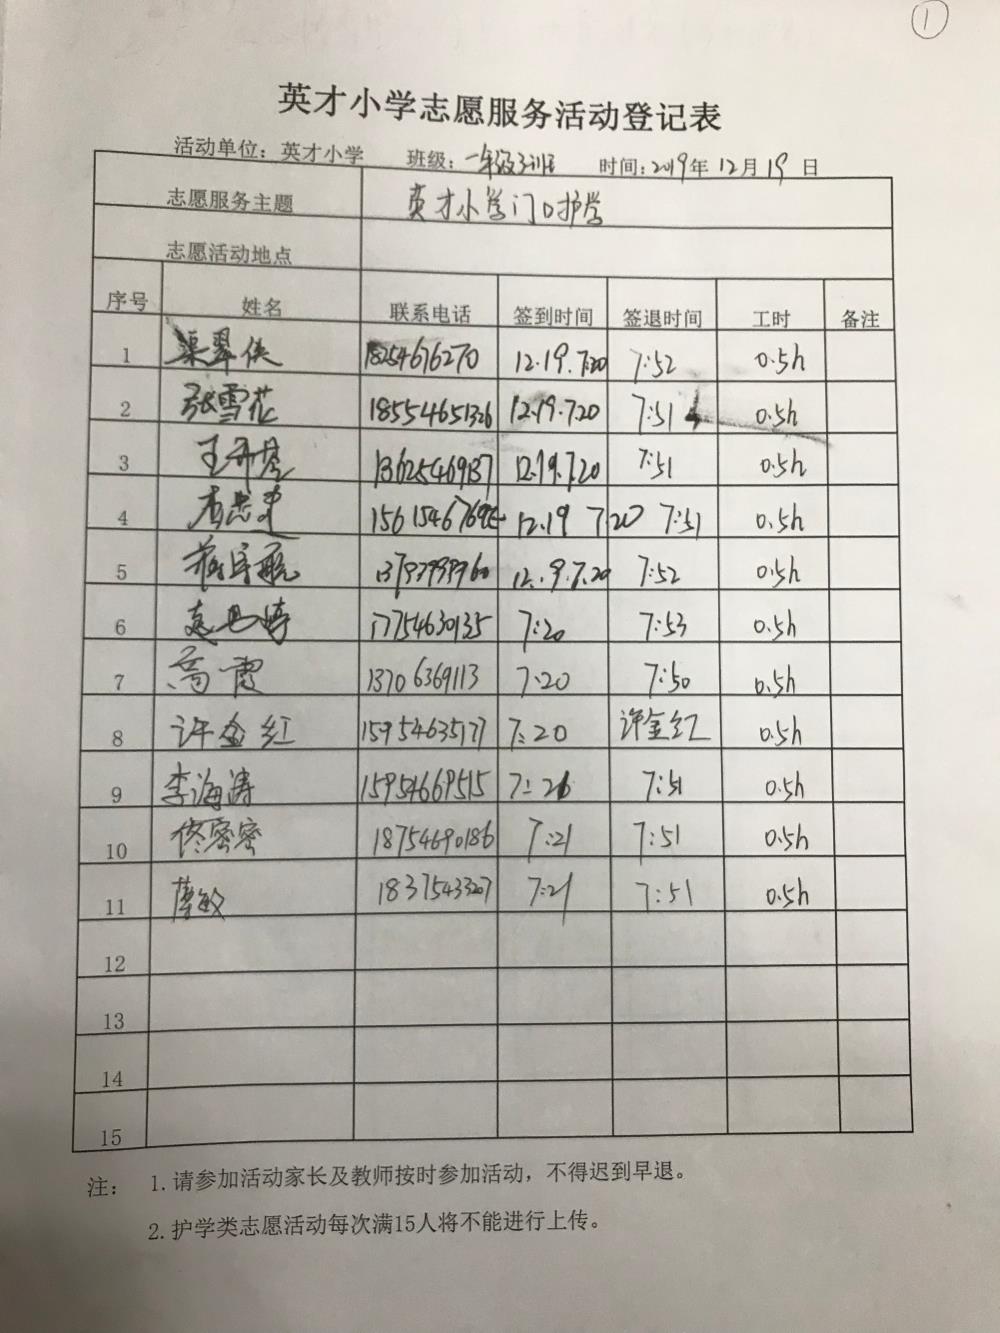 ①
英才小学志愿服务活动登记表
活动单位：英才小学 班级：一年级3班 时间：2019年12月19日
志愿服务主题 英才小学门口护学
志愿活动地点
序号 姓名 联系电话 签到时间 签退时间 工时 备注
1 渠翠侠 18254676270 12.19.7:20 7:52 0.5h
2 张雪花 18554651326 12.19.7:20 7:51 0.5h
3 13625469137 12.19.7:20 7:51 0.5h
4 12.19 7:20 7:51 0.5h
5 12.9.7:20 7:52 0.5h
6 17754630135 7:20 7:53 0.5h
7 高霞 13706369113 7:20 7:50 0.5h
8 许金红 15954635177 7:20 许金红 0.5h
9 李海涛 15954669515 7:26 7:51 0.5h
10 佟密密 18754690186 7:21 7:51 0.5h
11 薛敏 18375433207 7:21 7:51 0.5h
12
13
14
15
注： 1.请参加活动家长及教师按时参加活动，不得迟到早退。
2.护学类志愿活动每次满15人将不能进行上传。